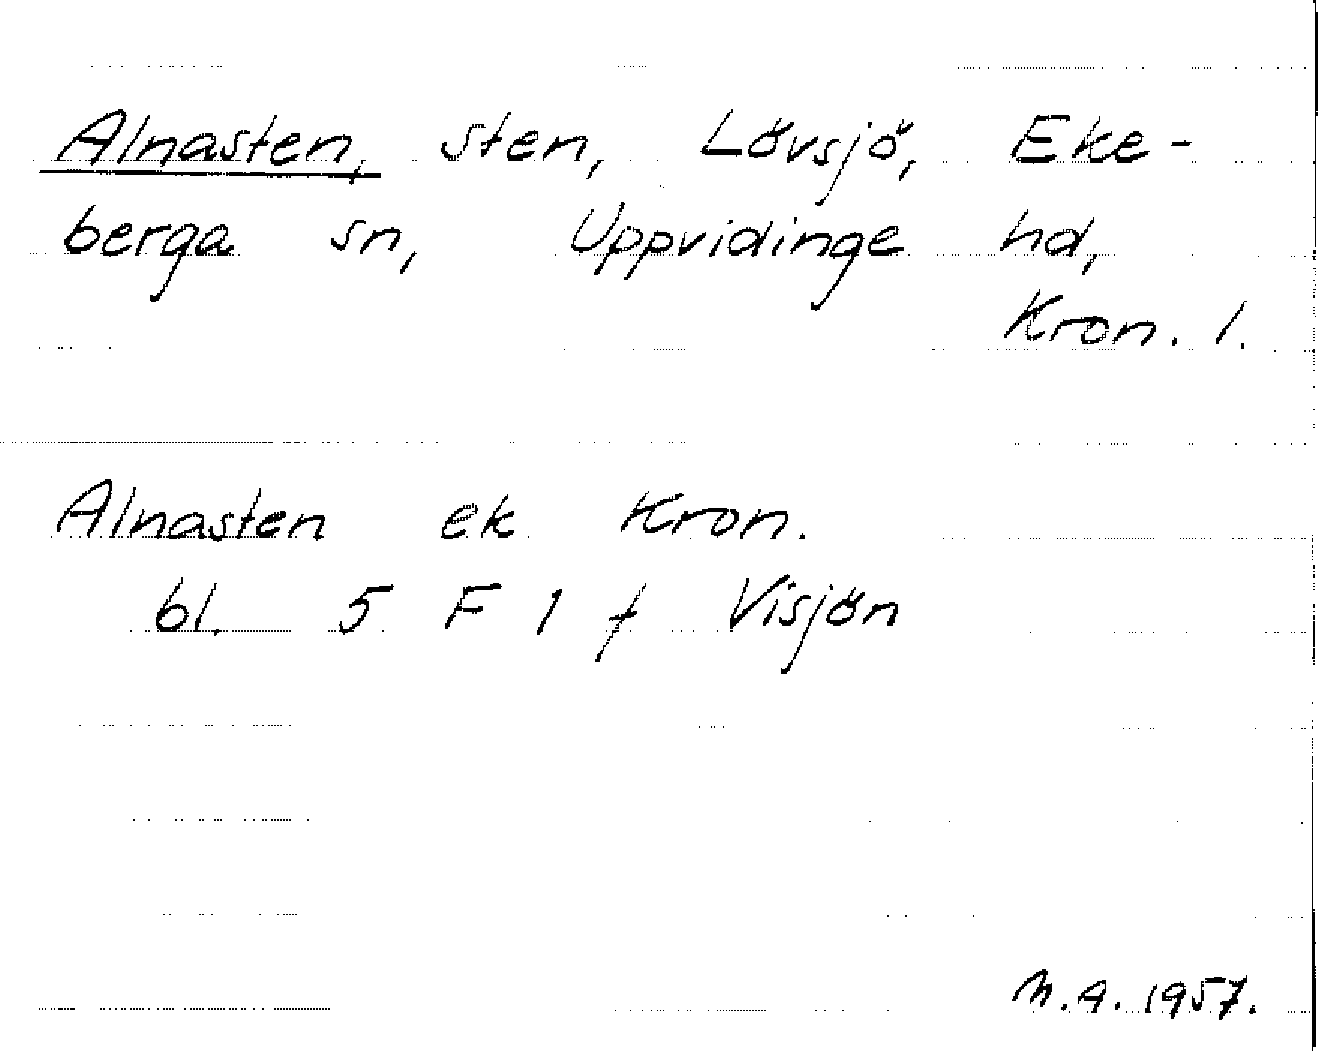 Alnasten, sten, Lövsjö, Eke-
berga sn, Uppvidinge hd,
Kron. l.
Alnasten ek Kron.
bl. 5 F 1 f Visjön
M.A. 1957.